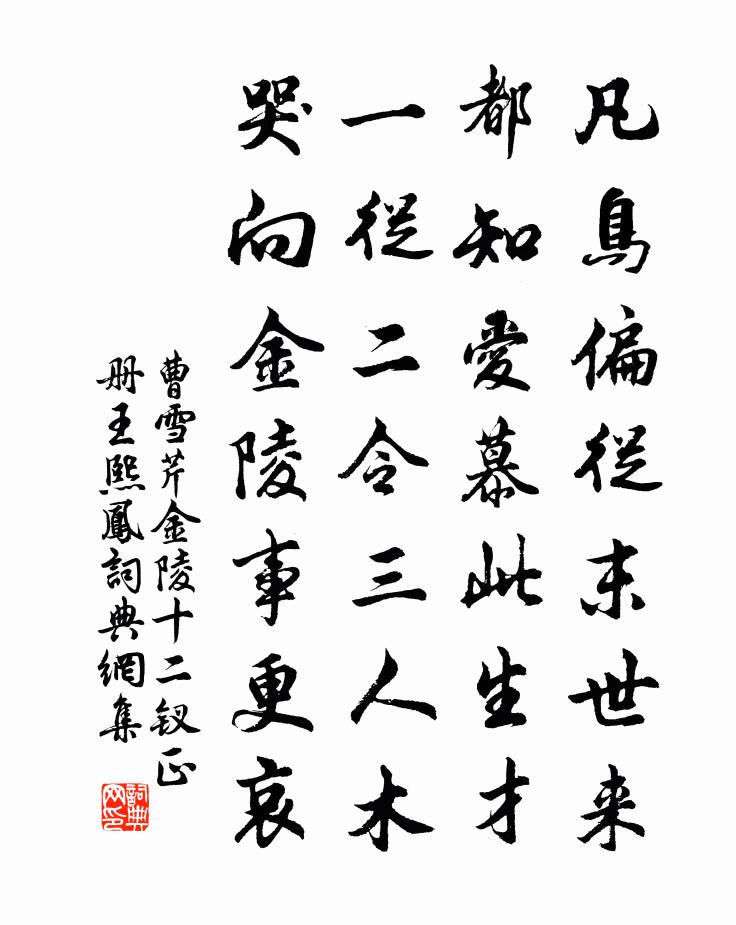 凡鳥偏從末世来
都知愛慕此生才
一從二令三人木
哭向金陵事更哀
曹雪芹金陵十二釵正
册王熙鳳詞典網集
詞典网印